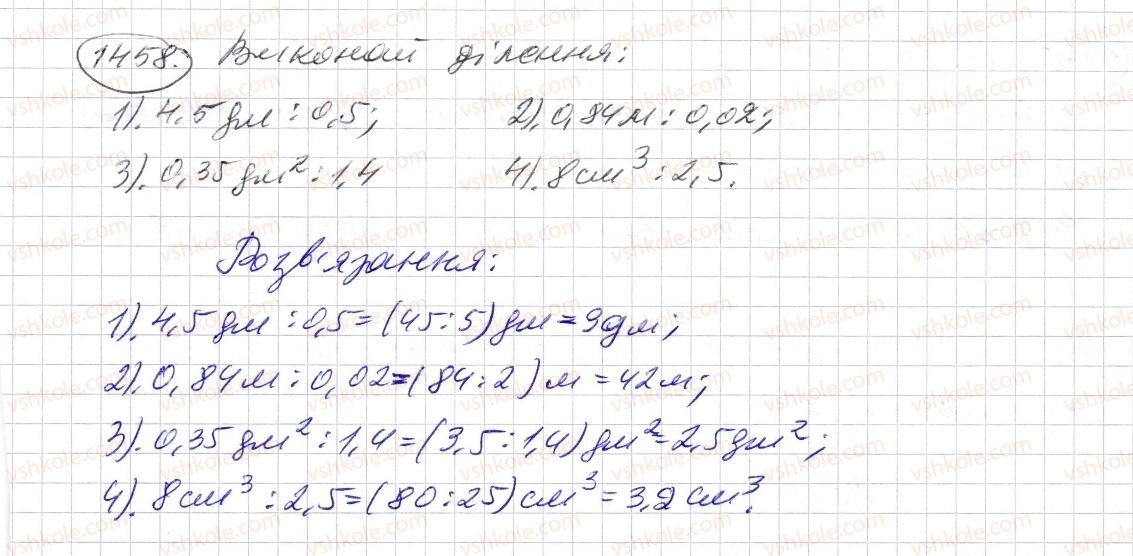 1458. Виконай ділення:
1). 4,5 дм : 0,5; 2). 0,84 м : 0,02;
3). 0,35 дм² : 1,4 4). 8 см³ : 2,5.
Розв'язання:
1). 4,5 дм : 0,5 = (45 : 5) дм = 9 дм;
2). 0,84 м : 0,02 = (84 : 2) м = 42 м;
3). 0,35 дм² : 1,4 = (3,5 : 1,4) дм² = 2,5 дм²;
4). 8 см³ : 2,5 = (80 : 25) см³ = 3,2 см³.